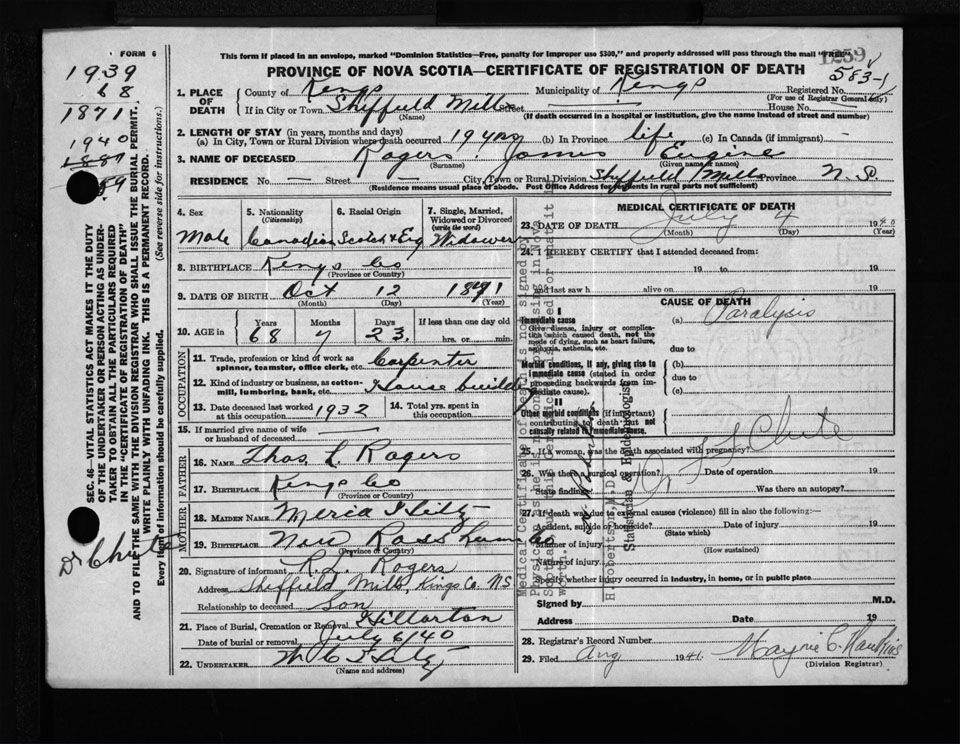 FORM 6
This form if placed in an envelope, marked "Dominion Statistics—Free, penalty for improper use $300," and properly addressed will pass through the mail "FREE"
1259
PROVINCE OF NOVA SCOTIA—CERTIFICATE OF REGISTRATION OF DEATH
583-1
1939
68
1871
1940
1887
59
1. PLACE OF DEATH
County of Kings
Municipality of Kings
Registered No.
(For use of Registrar General only)
If in City or Town Sheffield Mills Street
House No.
(Name)
(If death occurred in a hospital or institution, give the name instead of street and number)
2. LENGTH OF STAY (in years, months and days)
(a) In City, Town or Rural Division where death occurred 19 yrs (b) In Province life (c) In Canada (if immigrant) —
3. NAME OF DECEASED Rogers James Eugine
(Surname) (Given name or names)
RESIDENCE No. — Street — City, Town or Rural Division Sheffield Mills Province N.S.
(Residence means usual place of abode. Post Office Address for residents in rural parts not sufficient)
4. Sex
Male
5. Nationality
(Citizenship)
Canadian
6. Racial Origin
Scotch & Eng
7. Single, Married, Widowed or Divorced
(write the word)
Widower
8. BIRTHPLACE Kings Co
(Province or Country)
9. DATE OF BIRTH Oct 12 1871
(Month) (Day) (Year)
10. AGE in
Years Months Days If less than one day old
68 7 23 hrs. or min.
OCCUPATION
11. Trade, profession or kind of work as spinner, teamster, office clerk, etc. Carpenter
12. Kind of industry or business, as cotton-mill, lumbering, bank, etc. House building
13. Date deceased last worked at this occupation 1932
14. Total yrs. spent in this occupation
15. If married give name of wife or husband of deceased —
FATHER
16. NAME Thos. L Rogers
17. BIRTHPLACE Kings Co
(Province or Country)
MOTHER
18. MAIDEN NAME Hiltz
19. BIRTHPLACE New Ross Lun Co
(Province or Country)
20. Signature of informant Rogers
Address Sheffield Mills, Kings Co. NS
Relationship to deceased Son
21. Place of Burial, Cremation or Removal Hillaton
Date of burial or removal July 6/40
22. UNDERTAKER
(Name and address)
MEDICAL CERTIFICATE OF DEATH
23. DATE OF DEATH July 4 1940
(Month) (Day) (Year)
24. I HEREBY CERTIFY that I attended deceased from:
19 to 19
and last saw h alive on 19
CAUSE OF DEATH
Immediate cause
Give disease, injury or complication which caused death, not the mode of dying, such as heart failure, asphyxia, asthenia, etc.
(a) Paralysis
due to
Morbid conditions, if any, giving rise to immediate cause (stated in order proceeding backwards from immediate cause).
(b)
due to
(c)
II
Other morbid conditions (if important) contributing to death but not causally related to immediate cause.
Chute
25. If a woman, was the death associated with pregnancy?
26. Was there a surgical operation? Date of operation 19
State findings Was there an autopsy?
27. If death was due to external causes (violence) fill in also the following:—
Accident, suicide or homicide? Date of injury 19
(State which)
Manner of injury
(How sustained)
Nature of injury
Specify whether injury occurred in industry, in home, or in public place
Signed by M.D.
Address Date 19
28. Registrar's Record Number
29. Filed Aug 1941
(Division Registrar)
SEC. 46—VITAL STATISTICS ACT MAKES IT THE DUTY OF THE UNDERTAKER OR PERSON ACTING AS UNDERTAKER TO OBTAIN ALL THE PARTICULARS REQUIRED IN THE "CERTIFICATE OF REGISTRATION OF DEATH" AND TO FILE THE SAME WITH THE DIVISION REGISTRAR WHO SHALL ISSUE THE BURIAL PERMIT.
WRITE PLAINLY WITH UNFADING INK. THIS IS A PERMANENT RECORD.
Every item of information should be carefully supplied. (See reverse side for instructions.)
Dr Chute
Statistician & Epidemiologist